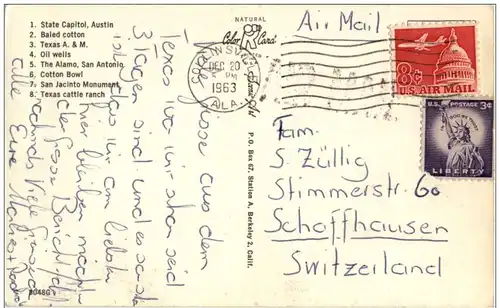 1. State Capitol, Austin
2. Baled cotton
3. Texas A. & M.
4. Oil wells
5. The Alamo, San Antonio
6. Cotton Bowl
7. San Jacinto Monument
8. Texas cattle ranch
NATURAL
Color Card
P. O. Box 67, Station A, Berkeley 2, Calif.
DEC 20
PM
1963
ALA.
Air Mail
8¢
U.S. AIR MAIL
U.S. POSTAGE 3¢
LIBERTY
Fam.
S. Züllig
Stimmerstr. 60
Schaffhausen
Switzerland
Viele Grüsse aus dem
Texas wo wir schon seid
3 Tagen sind und es
das wir am liebsten
hier bleiben möchten
Viele Grüsse
alle Eure